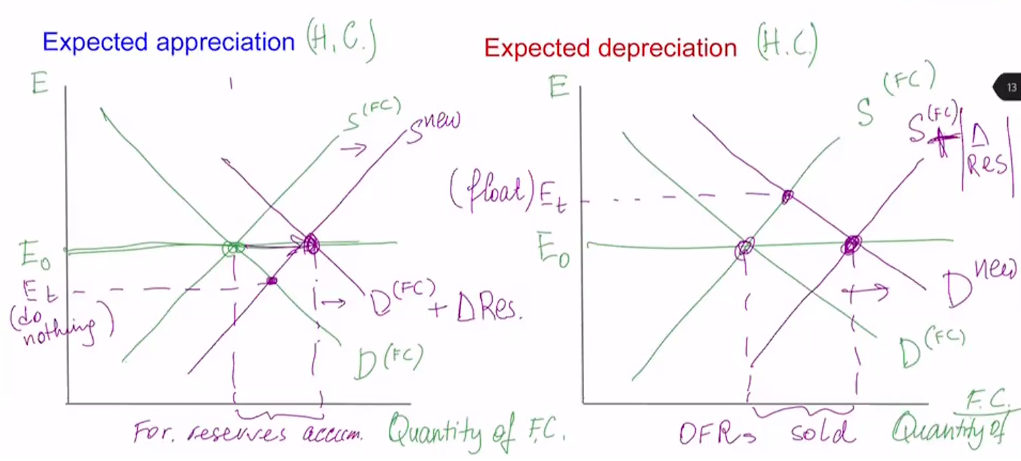 Expected appreciation (H.C.)
E
S (FC)
S new
E₀
E t
(do nothing)
D (FC) + Δ Res.
D (FC)
For. reserves accum.
Quantity of F.C.
Expected depreciation (H.C.)
13
E
S (FC)
S (FC) + |Δ Res|
(float) E t
E₀
D new
D (FC)
OFRs sold
F.C.
Quantity of